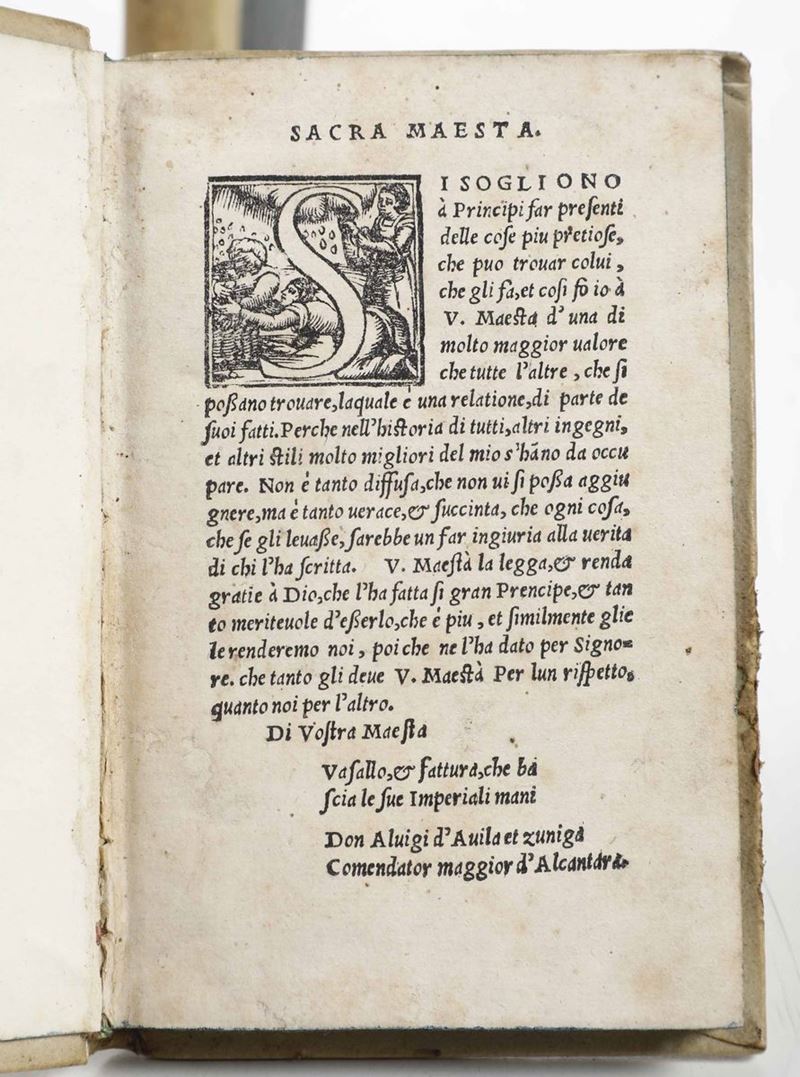 SACRA MAESTA.
SI SOGLIONO
à Principi far preſenti
delle coſe piu pretioſe,
che puo trouar colui,
che gli fa,et coſi fò io à
V. Maeſta d'una di
molto maggior ualore
che tutte l'altre, che ſi
poßano trouare,laquale è una relatione,di parte de
ſuoi fatti.Perche nell'hiſtoria di tutti,altri ingegni,
et altri ſtili molto migliori del mio s'hãno da occu
pare. Non è tanto diffuſa,che non ui ſi poßa aggiu
gnere,ma è tanto uerace,& ſuccinta, che ogni coſa,
che ſe gli leuaße, ſarebbe un far ingiuria alla uerita
di chi l'ha ſcritta. V. Maeſtà la legga,& renda
gratie à Dio,che l'ha fatta ſi gran Prencipe,& tan
to meriteuole d'eßerlo,che è piu, et ſimilmente glie
le renderemo noi, poi che ne l'ha dato per Signo=
re. che tanto gli deue V. Maeſtà Per lun riſpetto,
quanto noi per l'altro.
Di Voſtra Maeſta
Vaſallo,& fattura,che ba
ſcia le ſue Imperiali mani
Don Aluigi d'Auila et zuniga
Comendator maggior d'Alcantara.